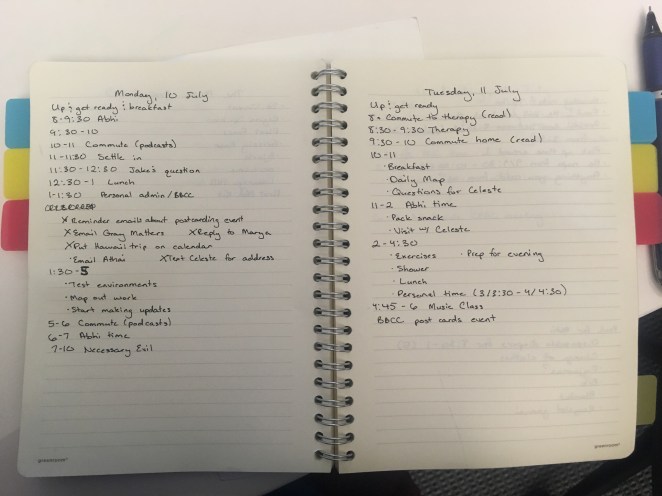 Monday, 10 July
Up & get ready & breakfast
8-9:30 Abhi
9:30-10
10-11 Commute (podcasts)
11-11:30 Settle in
11:30-12:30 Jake's question
12:30-1 Lunch
1-1:30 Personal admin/BBCC
X Reminder emails about postcarding event
X Email Gray Matters X Reply to Marya
X Put Hawaii trip on calendar
· Email X Text Celeste for address
1:30-5
· Test environments
· Map out work
· Start making updates
5-6 Commute (podcasts)
6-7 Abhi time
7-10 Necessary Evil
Tuesday, 11 July
Up & get ready
8- Commute to therapy (read)
8:30-9:30 Therapy
9:30-10 Commute home (read)
10-11
· Breakfast
· Daily Map
· Questions for Celeste
11-2 Abhi time
· Pack snack
· Visit w/ Celeste
2-4:30
· Exercises · Prep for evening
· Shower
· Lunch
· Personal time (3/3:30-4/4:30)
4:45-6 Music Class
BBCC post cards event